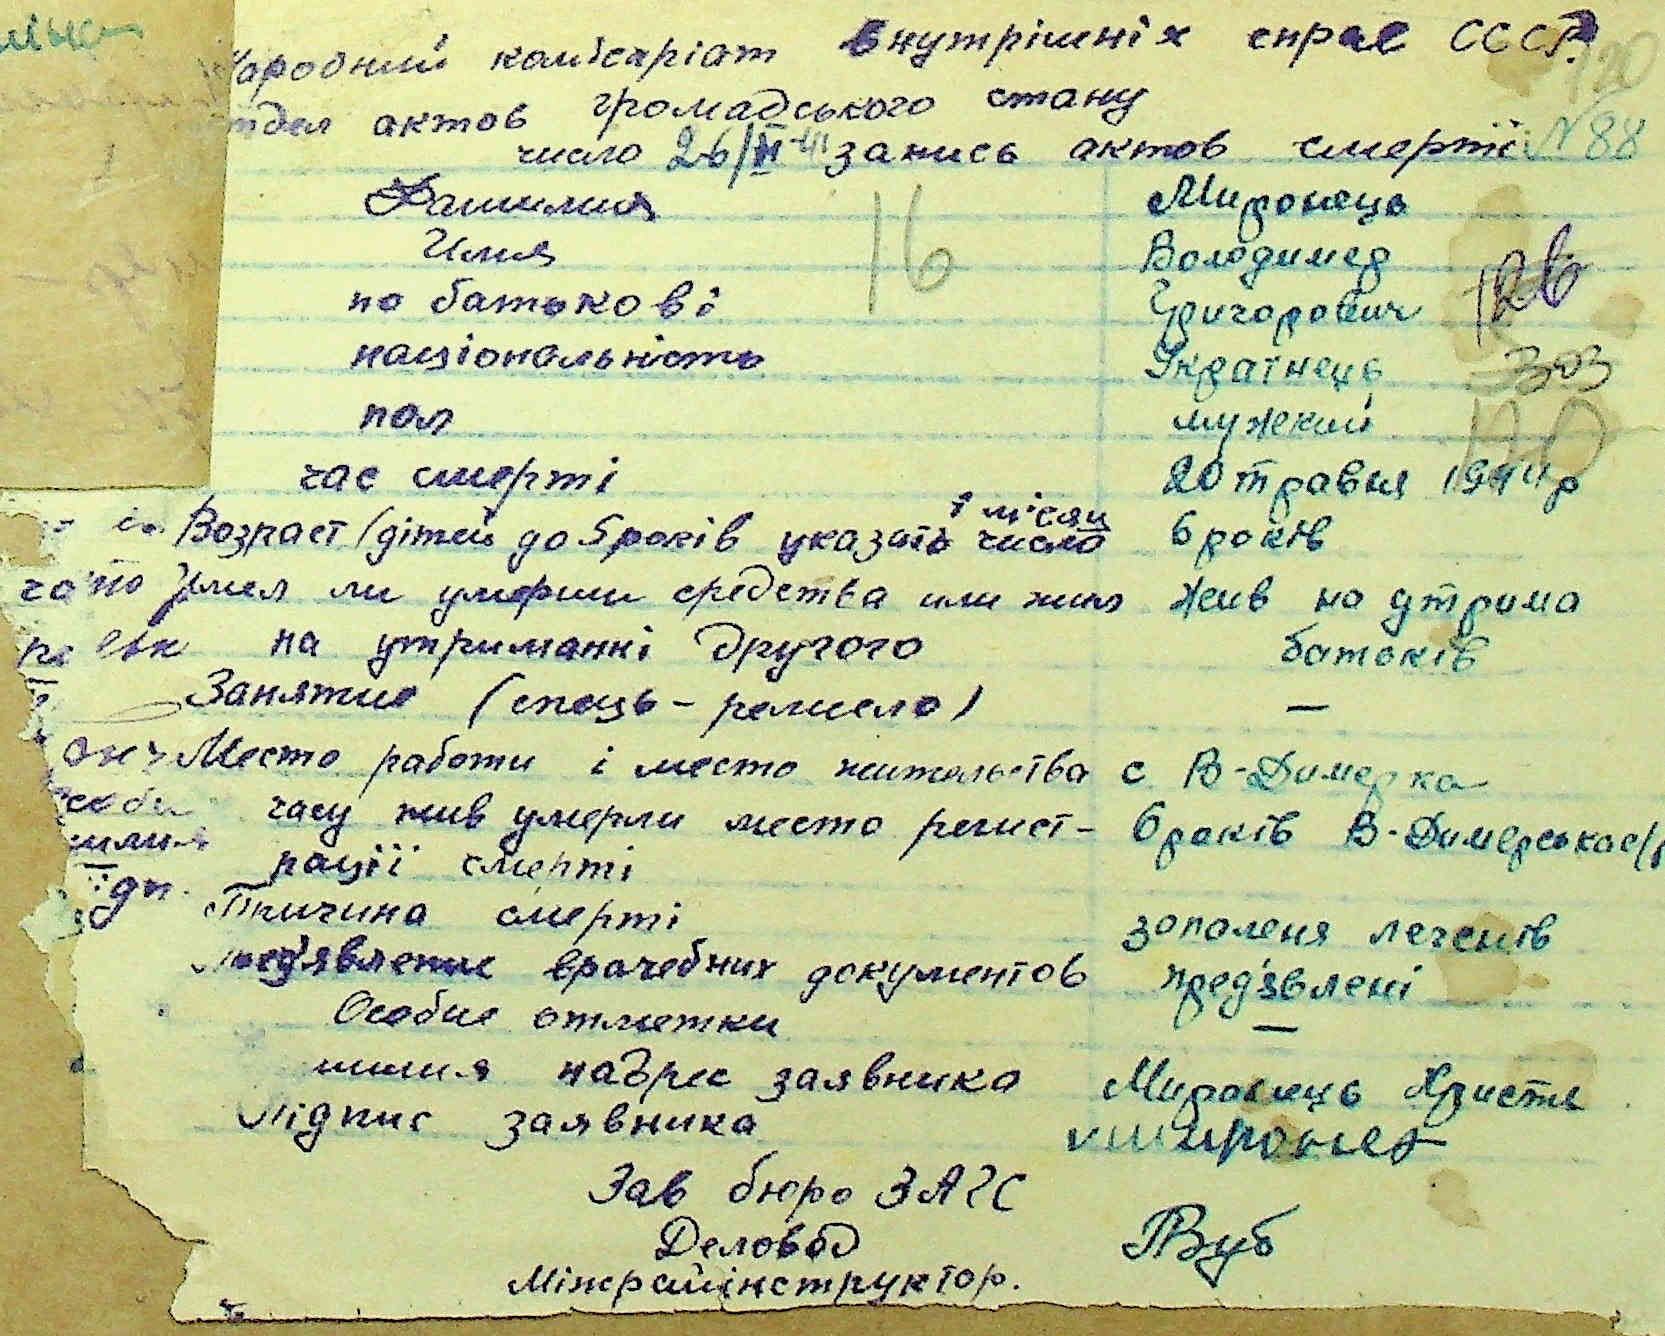 Народний комісаріат внутрішніх справ СССР
отдел актов громадського стану
число 26/VI-41 запись актов смерті N 88
Фамилия Миронець
Имя Володимер
по батькові Григорович
національність Українець
пол мужский
час смерті 20 травня 1944 р
Возраст (дітей до 5 років указать число і місяц 6 років
Имел ли умерший средства или жил Жив на утрима
на утриманні другого батьків
Занятие (спець - ремисло) —
Место работи і место жительства с В-Димерка
часу жив умерли место регист- 6 років В-Димерська с/р
рації смерті
Причина смерті запаленя легенів
предъявление врачебних документов предъявлені
Особие отметки —
надрес заявника Миронець Христя
Підпис заявника Миронец
Зав бюро ЗАГС
Деловод
Міжрайінструктор.
16
120
126
303
120